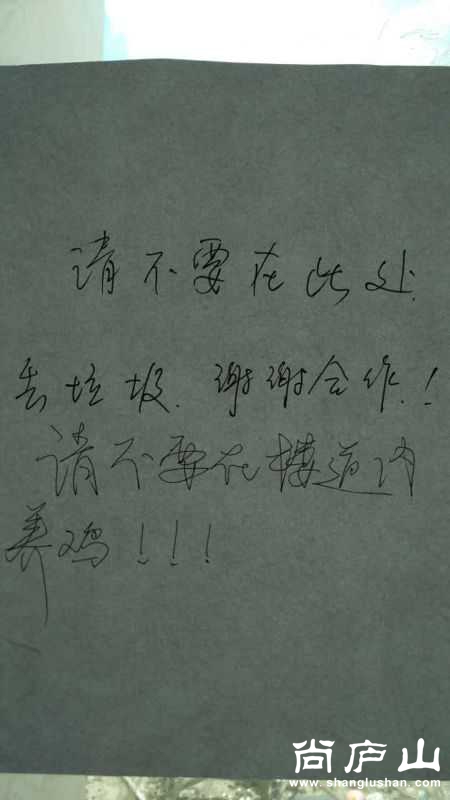 请不要在此处.
丢垃圾.谢谢合作.!
请不要在楼道内
养鸡!!!
尚庐山
www.shanglushan.com